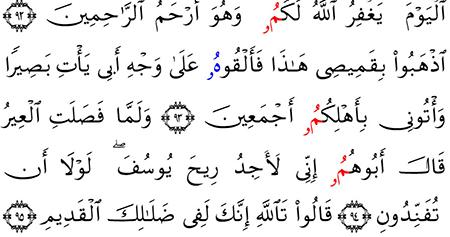 ٱلْيَوْمَ يَغْفِرُ ٱللَّهُ لَكُمُۥ وَهُوَ أَرْحَمُ ٱلرَّٰحِمِينَ ۝٩٢
ٱذْهَبُوا۟ بِقَمِيصِى هَٰذَا فَأَلْقُوهُۥ عَلَىٰ وَجْهِ أَبِى يَأْتِ بَصِيرًا
وَأْتُونِى بِأَهْلِكُمُۥ أَجْمَعِينَ ۝٩٣ وَلَمَّا فَصَلَتِ ٱلْعِيرُ
قَالَ أَبُوهُمُۥ إِنِّى لَأَجِدُ رِيحَ يُوسُفَ ۖ لَوْلَا أَن
تُفَنِّدُونِ ۝٩٤ قَالُوا۟ تَٱللَّهِ إِنَّكَ لَفِى ضَلَٰلِكَ ٱلْقَدِيمِ ۝٩٥